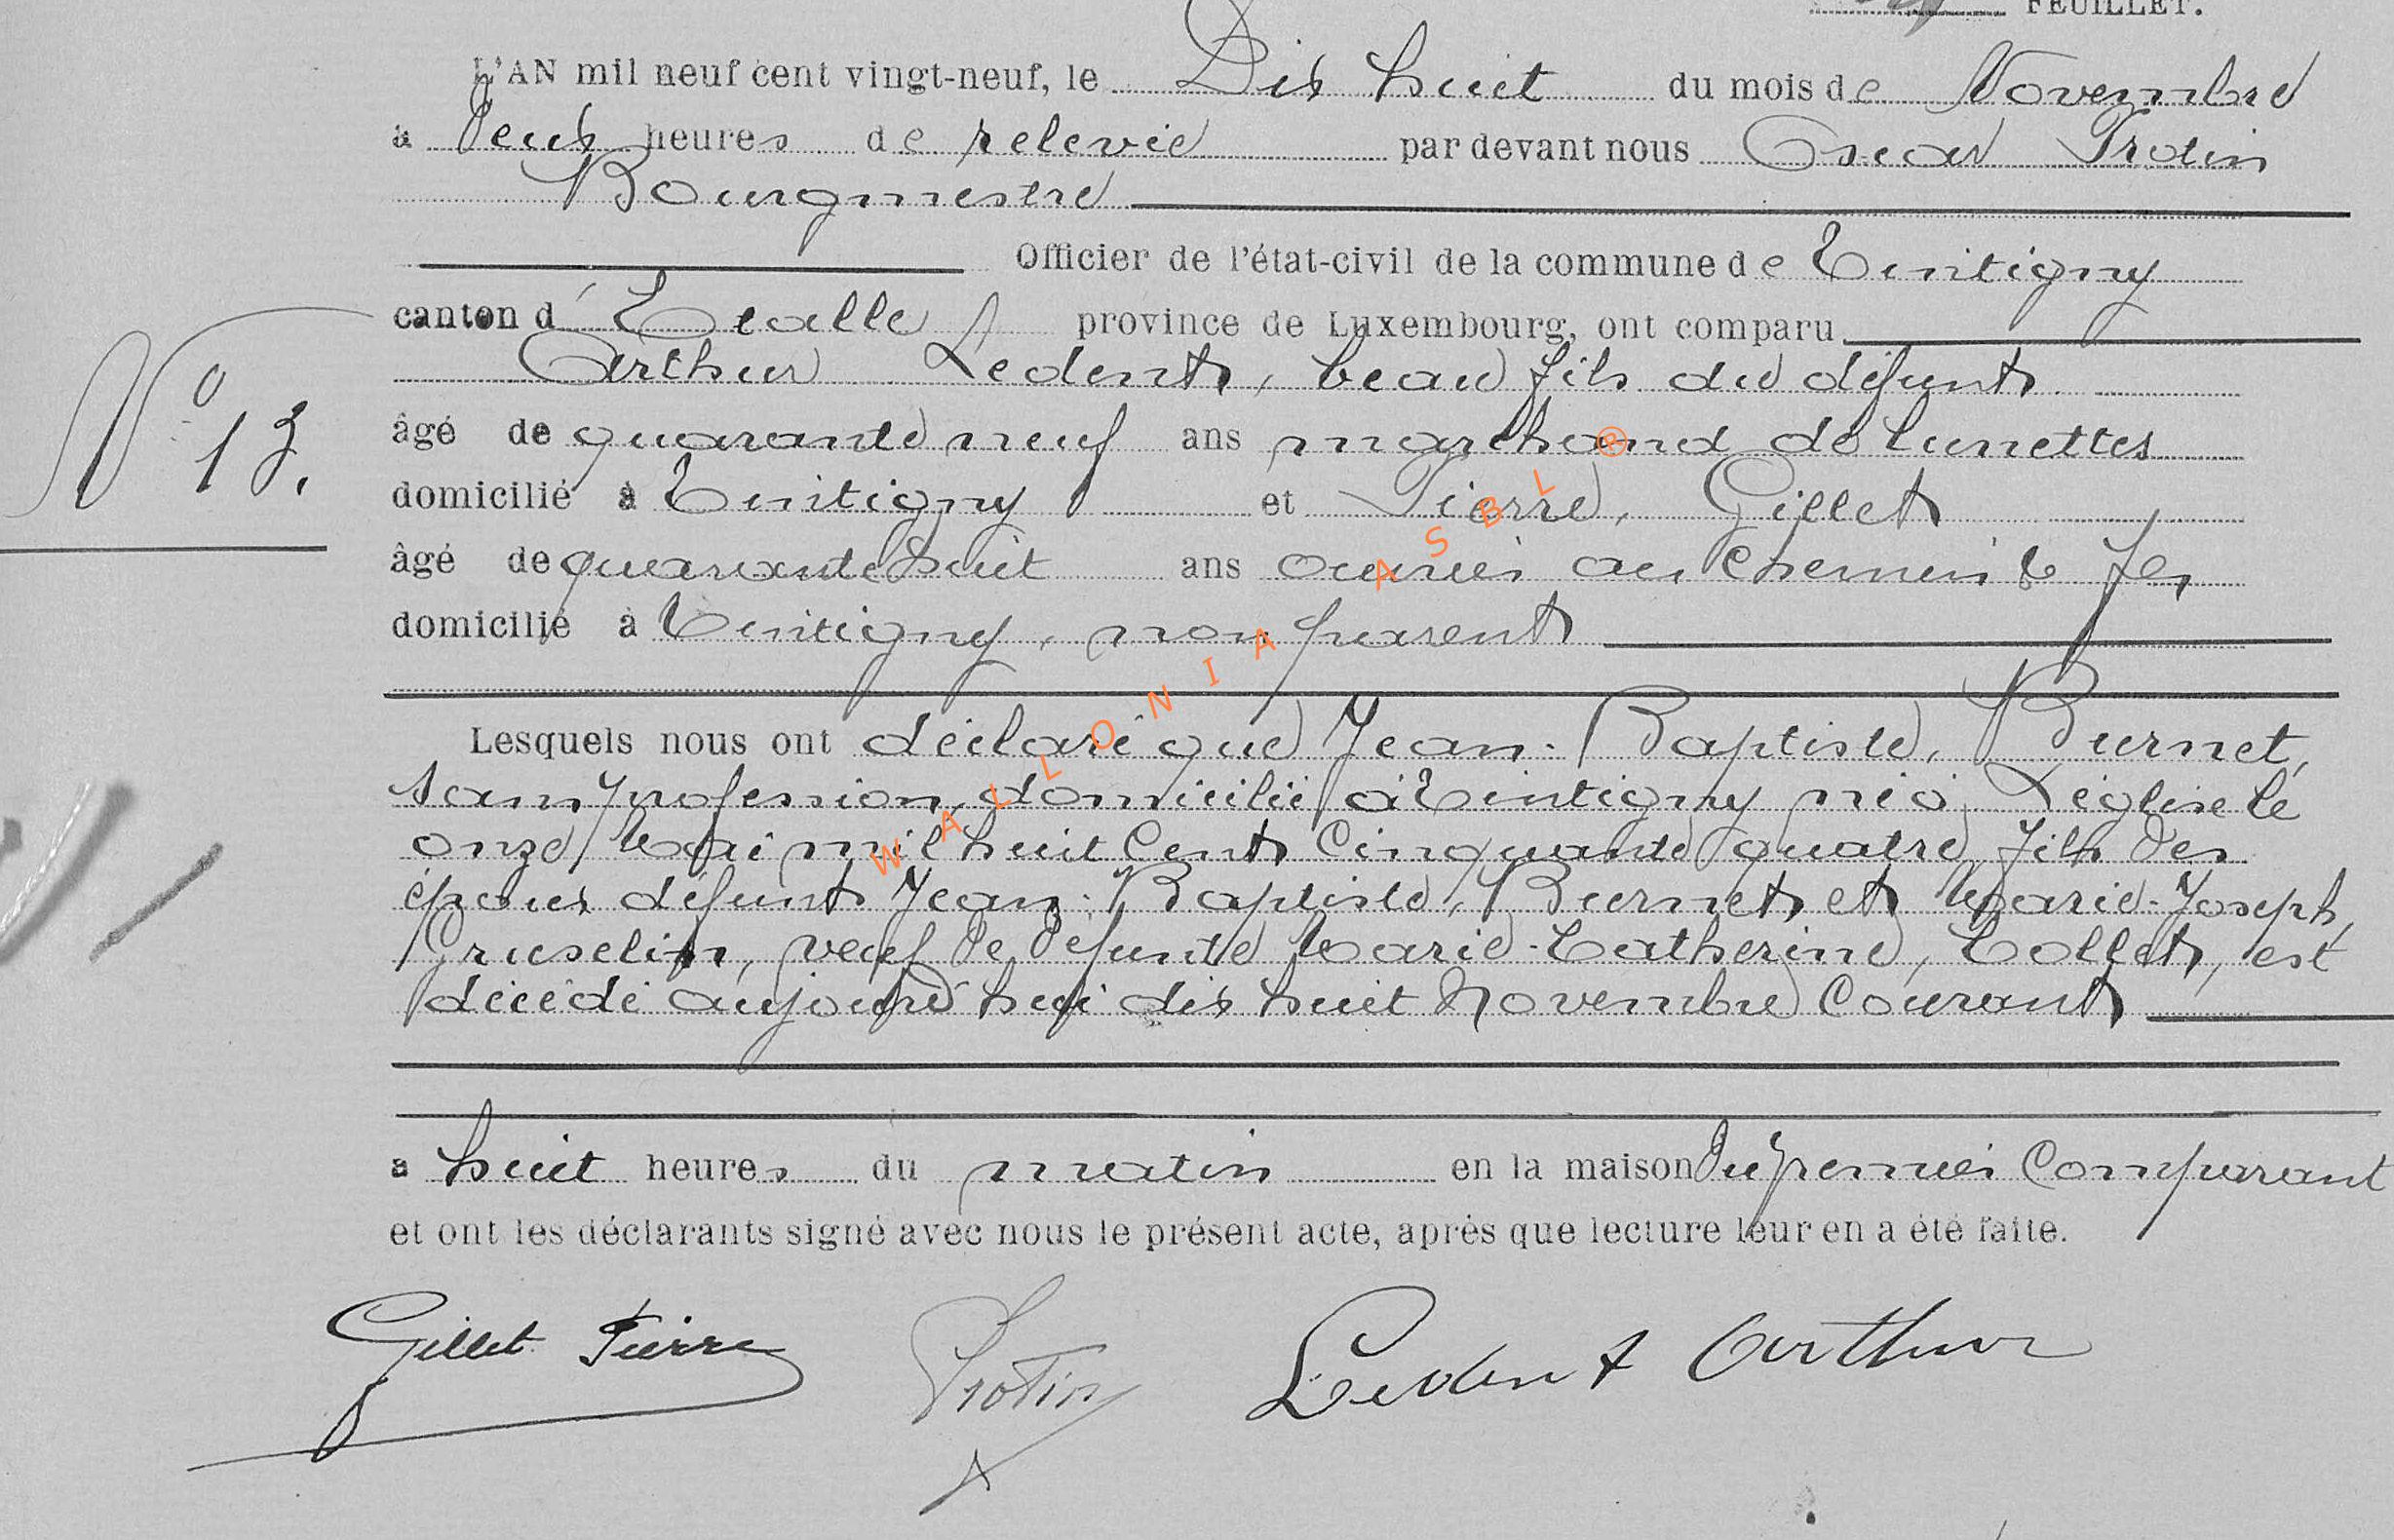 FEUILLET.
L'AN mil neuf cent vingt-neuf, le Dix huit du mois de Novembre
à Deux heures de relevée par devant nous Oscar Protin
Bourgmestre
Officier de l'état-civil de la commune de Tintigny
canton d'Etalle province de Luxembourg, ont comparu
Arthur Ledent, beau fils du défunt
N° 13.
âgé de quarante neuf ans marchand de lunettes
domicilié à Tintigny et Pierre, Gillet
âgé de quarante huit ans ouvrier au chemin de fer
domicilié à Tintigny, non parent
Lesquels nous ont déclaré que Jean-Baptiste, Burnet,
sans profession, domicilié à Tintigny né à Léglise le
onze Mai mil huit Cent Cinquante quatre, fils des
époux défunts Jean-Baptiste, Burnet et Marie-Joseph,
veuf de défunte Marie-Catherine, Collet, est
décédé aujourd'hui dix huit Novembre Courant
à huit heures du matin en la maison du premier Comparant
et ont les déclarants signé avec nous le présent acte, après que lecture leur en a été faite.
Gillet Pierre Protin Ledent Arthur
WALLONIA ASBL ®